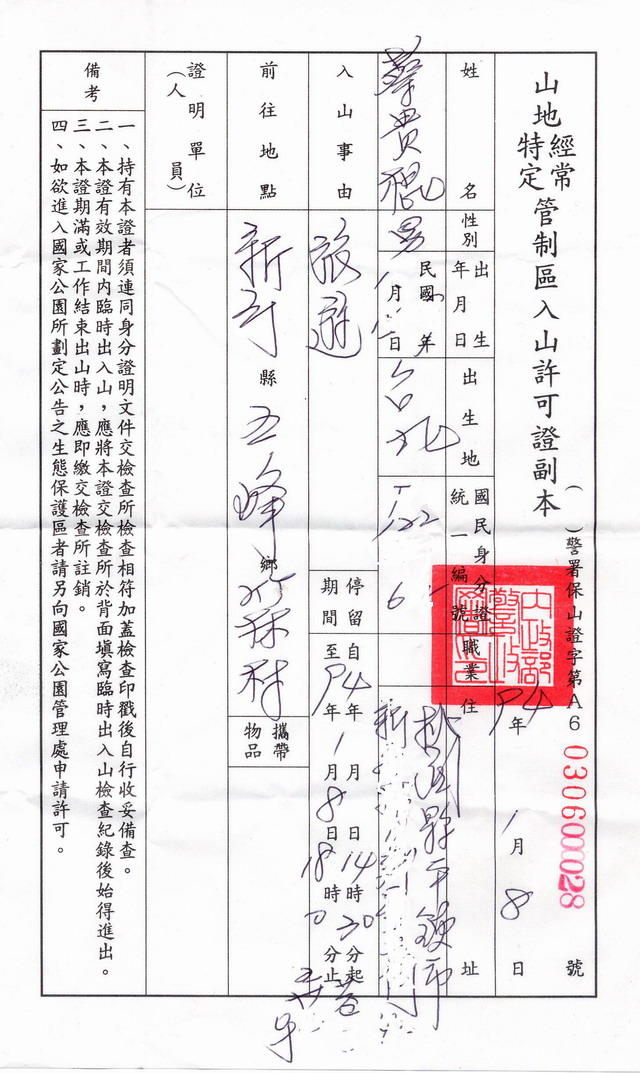 山地經常特定管制區入山許可證副本
( )警署保山證字第A6 030600028 號
94年1月8日
內政部警政署
姓名
蔡貴
性別
男
出生年月日
民國 年 月 日
出生地
台北
國民身分證統一編號
職業
住址
桃園縣平鎮市
新
入山事由
旅遊
停留期間
自94年1月8日14時30分起
至94年1月8日18時0分止
前往地點
新竹縣五峰鄉
攜帶物品
證明單位(人員)
備考
一、持有本證者須連同身分證明文件交檢查所檢查相符加蓋檢查印戳後自行收妥備查。
二、本證有效期間內臨時出入山,應將本證交檢查所於背面填寫臨時出入山檢查紀錄後始得進出。
三、本證期滿或工作結束出山時,應即繳交檢查所註銷。
四、如欲進入國家公園所劃定公告之生態保護區者請另向國家公園管理處申請許可。